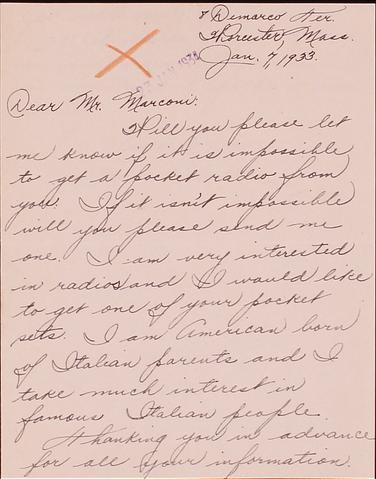 8 Demarco Ter.
Worcester, Mass.
Jan. 7, 1933.
JAN 1934
Dear Mr. Marconi:
Will you please let
me know if it is impossible
to get a pocket radio from
you. If it isn't impossible
will you please send me
one. I am very interested
in radios and I would like
to get one of your pocket
sets. I am American born
of Italian parents and I
take much interest in
famous Italian people.
Thanking you in advance
for all your information.